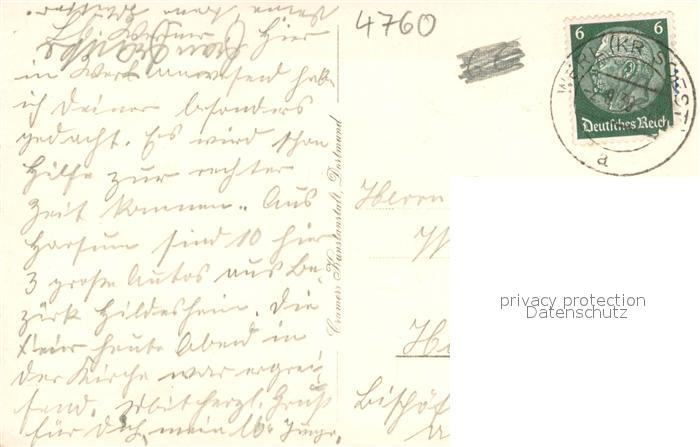 4760
Hier
in Werl anwesend habe
ich Deiner besonders
gedacht. Es wird schon
Hilfe zur rechten
Zeit kommen. Aus
Harsum sind 10 hier
3 große Autos aus Be-
zirk Hildesheim. Die
Feier heute Abend in
der Kirche war ergrei-
fend. herzl. Gruß
für Dich, mein lb.
Cramers Kunstanstalt, Dortmund
6 6
Deutsches Reich
WERL (KR. SOEST)
a
Herrn
Bischöf
privacy protection
Datenschutz